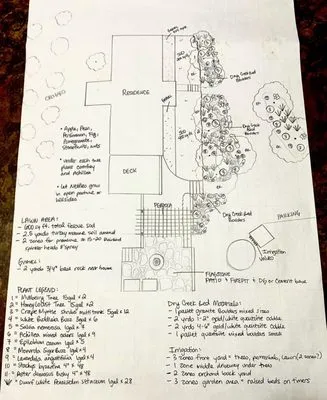 ORCHARD
RESIDENCE
• Apple, Pear,
Persimmon, Fig,
Pomegranate,
• Under each tree
plant comfrey
and Achillea
• Let Nettles grow
in open pasture or
hillsides
DECK
PERGOLA
Dry Creek Bed
Boulders
Dry Creek Bed
Boulders
Dry Creek Bed
Boulders
PARKING
Irrigation
Valves
FLAGSTONE
PATIO + FIREPIT + DG or Cement base
LAWN AREA:
- 600 sq ft. total fescue sod
- 2.5 yards turkey manure soil amend
- 2 zones for
sprinkler heads
GRAVEL:
- 2 yards 3/4" base rock near house
PLANT LEGEND:
1 = Mulberry Tree 15gal x 2
2 = Honey Locust Tree 15gal x 2
3 = Crape Myrtle shrub/multi trunk 5gal x 12
4 = White Buddleia 5gal x 6
5 = Salvia nemorosa 1gal x
6 = Achillea mixed colors 1gal x 9
7 = Epilobium canum 1gal x 5
8 = Monarda 1gal x 6
9 = Lavandula angustifolia 1gal x
10 = Stachys byzantina 4" x 48
11 = Aster 4" x 48
= Dwarf White Pennisetum Setaceum 1gal x 28
Dry Creek Bed Materials:
- 1 pallet granite boulders mixed sizes
- 2 yrds 1-2" gold/white quartzite cobble
- 2 yrds 4-6" gold/white quartzite cobble
- 1 pallet quartzite mixed boulder sizes
Irrigation:
- 3 zones front yard = trees, perennials, lawn (2 zones?)
- 1 zone middle driveway under trees
- 2 zones orchard back yard
- 3 zones garden area + raised beds on timers